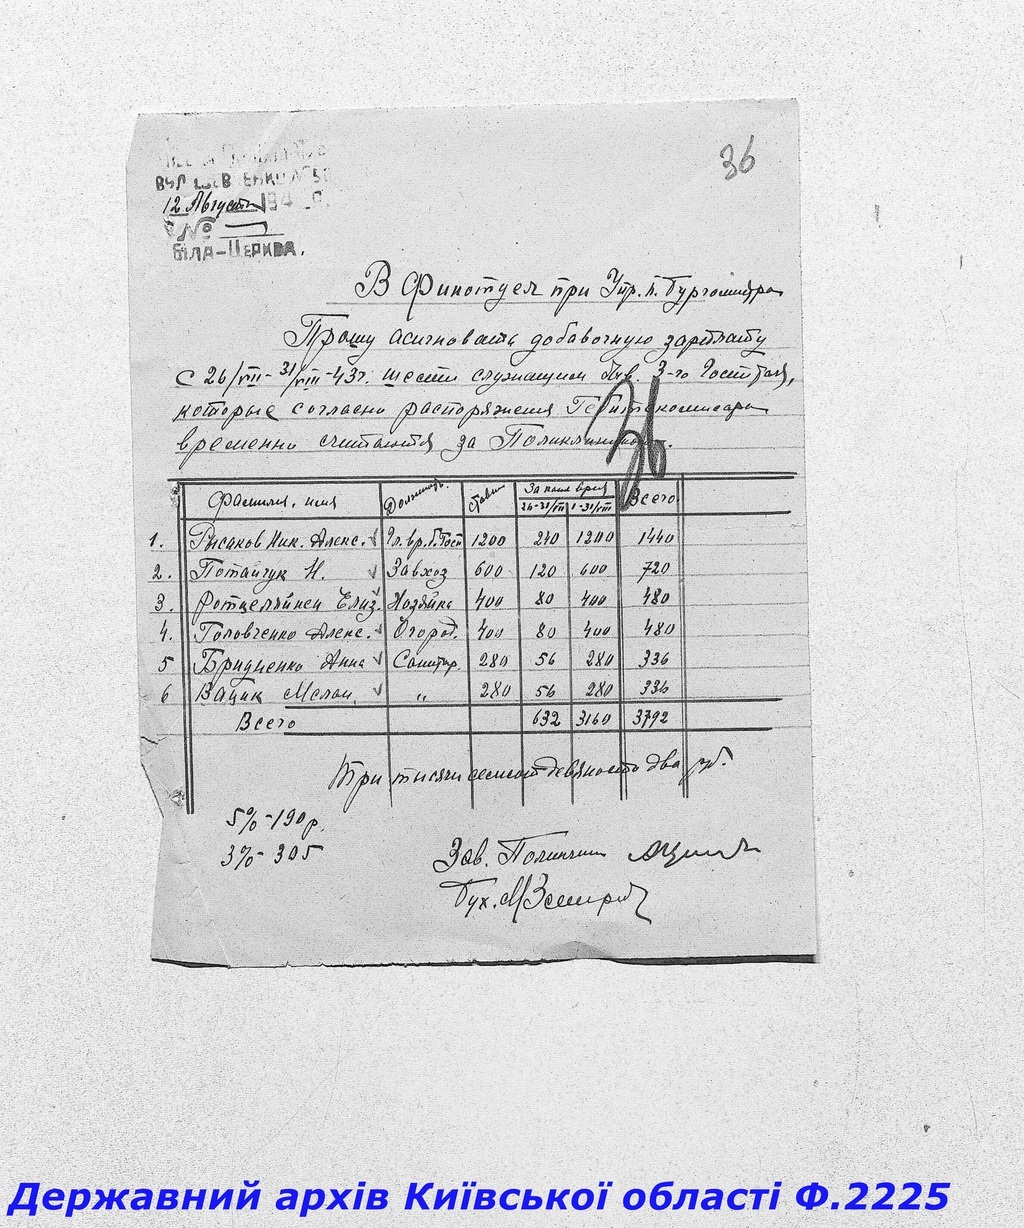 36
12 Августа 194
№
БІЛА-ЦЕРКВА.
В Финотдел при Упр. п. Бургомистра
Прошу асигновать добавочную зарплату
с 26/VII - 31/VIII - 43г. шести служащим 3-го
которые согласно распоряжения Гебитскомисара
временно считаются за
36
Фамилия, имя Должность. Ставка За какое время Всего
26-31/VII 1-31/VIII
1. Рысаков Ник. Алекс. Гл. вр. Г. Госп 1200 240 1200 1440
2. Потайчук Н. Завхоз 600 120 600 720
3. Елиз. Хозяйка 400 80 400 480
4. Головченко Алекс. Огород. 400 80 400 480
5 Анна Санитар. 280 56 280 336
6 Вацик " 280 56 280 336
Всего 632 3160 3792
Три тысячи семьсот девяносто два руб.
5% - 190 р.
3% - 305
Зав.
Бух.
Державний архів Київської області Ф.2225